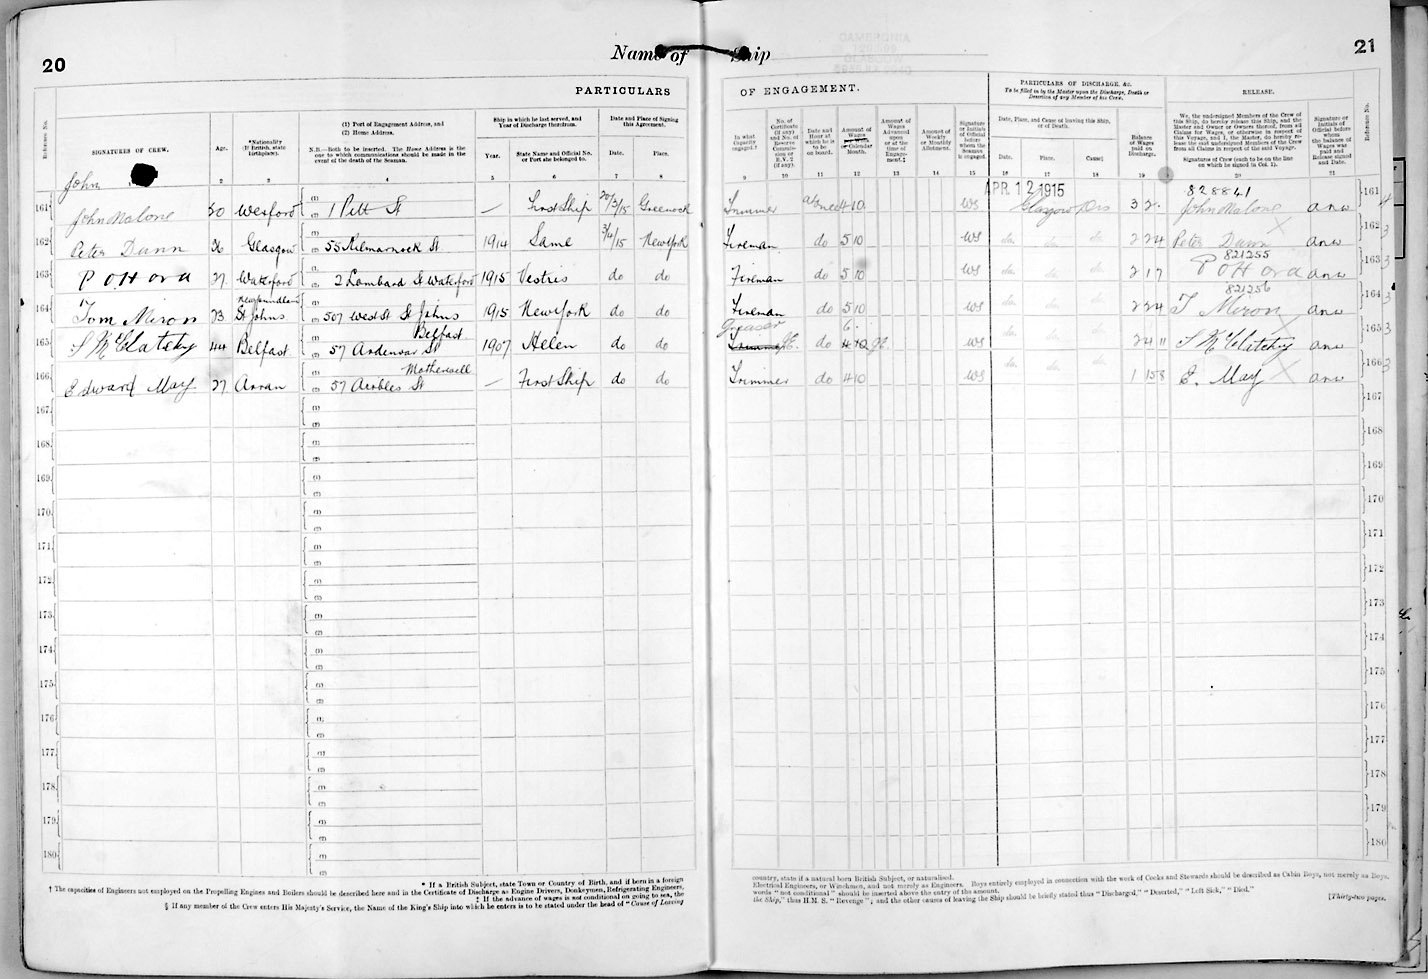 20
Name of Ship
21
PARTICULARS OF ENGAGEMENT.
PARTICULARS OF DISCHARGE, &c.
To be filled in by the Master upon the Discharge, Death or Desertion of any Member of his Crew.
RELEASE.
Reference No.
SIGNATURES OF CREW.
Age.
*Nationality (If British, state birthplace).
(1) Port of Engagement Address, and
(2) Home Address.
N.B.—Both to be inserted. The Home Address is the one to which communications should be made in the event of the death of the Seaman.
Ship in which he last served, and Year of Discharge therefrom.
Year.
State Name and Official No. or Port she belonged to.
Date and Place of Signing this Agreement.
Date.
Place.
In what Capacity engaged.†
No. of Certificate (if any) and No. of Reserve Commission or R.V. 2 (if any).
Date and Hour at which he is to be on board.
Amount of Wages per Week or Calendar Month.
Amount of Wages Advanced upon or at the time of Engagement.‡
Amount of Weekly or Monthly Allotment.
Signature or Initials of Official before whom the Seaman is engaged.
Date, Place, and Cause of leaving this Ship, or of Death.
Date.
Place.
Cause§
Balance of Wages paid on Discharge.
We, the undersigned Members of the Crew of this Ship, do hereby release this Ship, and the Master and Owner or Owners thereof, from all Claims for Wages, or otherwise in respect of this Voyage, and I, the Master, do hereby release the said undersigned Members of the Crew from all Claims in respect of the said Voyage.
Signatures of Crew (each to be on the line on which he signed in Col. 1).
Signature or Initials of Official before whom the balance of Wages was paid and Release signed and Date.
Reference No.
2 3 4 5 6 7 8 9 10 11 12 13 14 15 16 17 18 19 20 21
John
APR 12 1915
828841
161 John Malone 20 Wexford 1 Pitt St — First Ship 30/3/15 Greenock Trimmer at once 4 10 WS Glasgow Dis 3 2 John Malone anw 161
162 Peter Dunn 36 Glasgow 55 Kilmarnock St 1914 Same 3/4/15 New York Fireman do 5 10 WS do do do 2 2 4 Peter Dunn anw 162
821255
163 P O'Hora 27 Waterford 2 Lombard St Waterford 1915 Vestris do do Fireman do 5 10 WS do do do 2 17 P O'Hora anw 163
821256
164 Tom Miron 23 Newfoundland St Johns 507 West St St Johns 1915 New York do do Fireman do 5 10 WS do do do 2 2 4 T Miron anw 164
165 S McClatchy 44 Belfast 57 Ardenvar St Belfast 1907 Helen do do Greaser do 6 WS do do do 2 4 11 S McClatchy anw 165
166 Edward May 27 Arran 57 Airbles St Motherwell — First Ship do do Trimmer do 4 10 WS do do do 1 15 8 E. May anw 166
167 167
168 168
169 169
170 170
171 171
172 172
173 173
174 174
175 175
176 176
177 177
178 178
179 179
180 180
* If a British Subject, state Town or Country of Birth, and if born in a foreign country, state if a natural born British Subject, or naturalised.
† The capacities of Engineers not employed on the Propelling Engines and Boilers should be described here and in the Certificate of Discharge as Engine Drivers, Donkeymen, Refrigerating Engineers, Electrical Engineers, or Winchmen, and not merely as Engineers. Boys entirely employed in connection with the work of Cooks and Stewards should be described as Cabin Boys, not merely as Boys.
‡ If the advance of wages is not conditional on going to sea, the words "not conditional" should be inserted above the entry of the amount.
§ If any member of the Crew enters His Majesty's Service, the Name of the King's Ship into which he enters is to be stated under the head of "Cause of Leaving the Ship," thus H.M.S. "Revenge"; and the other causes of leaving the Ship should be briefly stated thus "Discharged," "Deserted," "Left Sick," "Died."
[Thirty-two pages.